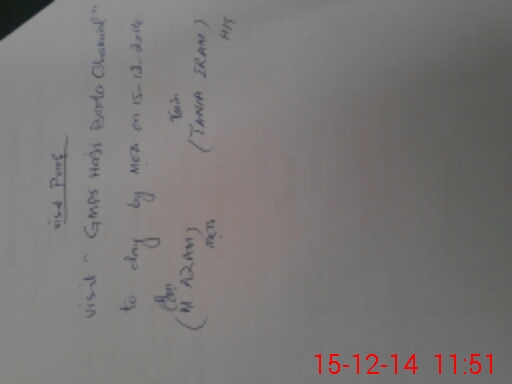 Visit Proof
Visit " GMPS Haji
to day by MEA on 15-12-2014
(M AZAM)
MEA
(TANIA IRAM)
H/T
15-12-14 11:51